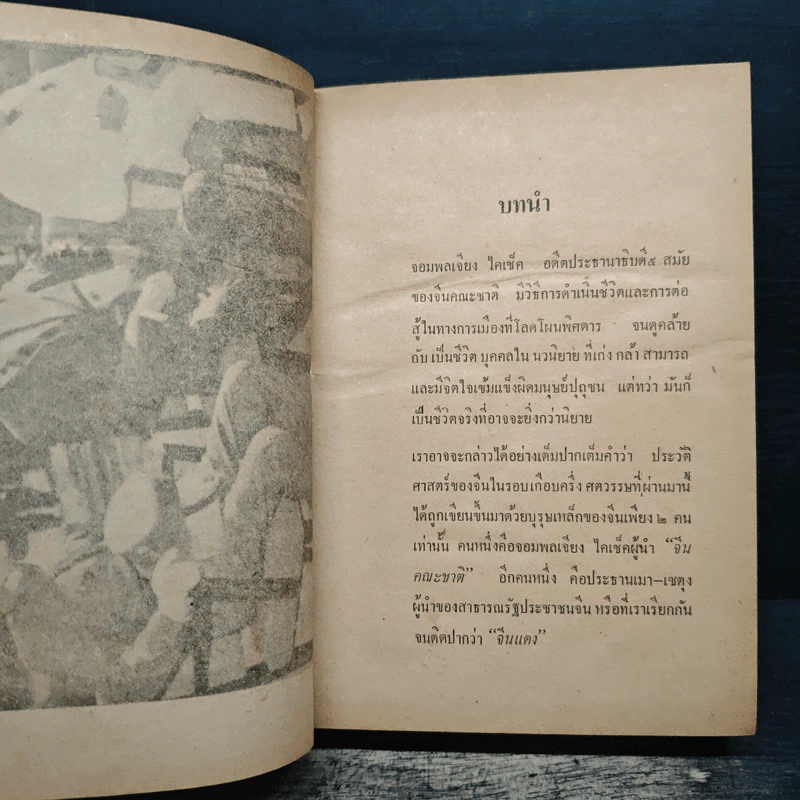 บทนำ
จอมพลเจียง ไคเช็ค อดีตประธานาธิบดี๕ สมัย
ของจีนคณะชาติ มีวิธีการดำเนินชีวิตและการต่อ
สู้ในทางการเมืองที่โลดโผนพิศดาร จนดูคล้าย
กับ เป็นชีวิต บุคคลใน นวนิยาย ที่เก่ง กล้า สามารถ
และมีจิตใจเข้มแข็งผิดมนุษย์ปุถุชน แต่ทว่า มันก็
เป็นชีวิตจริงที่อาจจะยิ่งกว่านิยาย
เราอาจจะกล่าวได้อย่างเต็มปากเต็มคำว่า ประวัติ
ศาสตร์ของจีนในรอบเกือบครึ่ง ศตวรรษที่ผ่านมานี้
ได้ถูกเขียนขึ้นมาด้วยบุรุษเหล็กของจีนเพียง ๒ คน
เท่านั้น คนหนึ่งคือจอมพลเจียง ไคเช็คผู้นำ “จีน
คณะชาติ” อีกคนหนึ่ง คือประธานเมา–เซตุง
ผู้นำของสาธารณรัฐประชาชนจีน หรือที่เราเรียกกัน
จนติดปากว่า “จีนแดง”